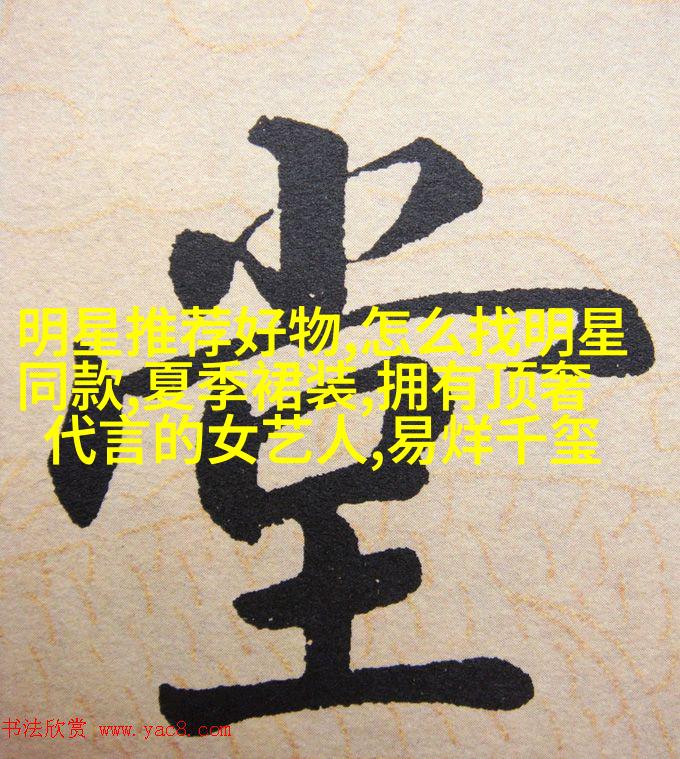 堂
明星推荐好物,怎么找明星
同款,夏季裙装,拥有顶奢
代言的女艺人,易烊千玺
书法欣赏 www.yac8.com